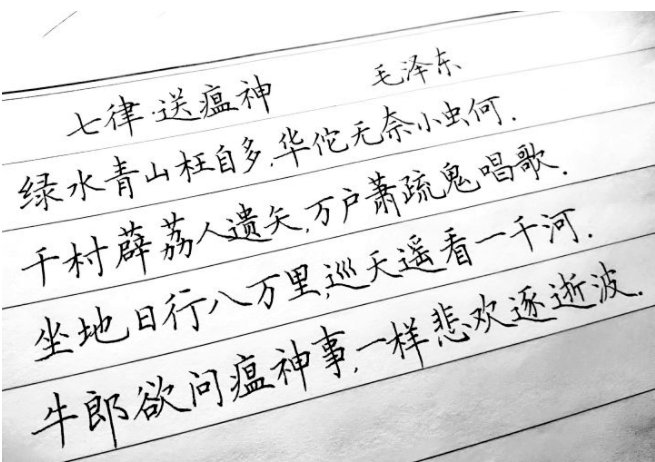 七律·送瘟神 毛泽东
绿水青山枉自多,华佗无奈小虫何.
千村薜荔人遗矢,万户萧疏鬼唱歌.
坐地日行八万里,巡天遥看一千河.
牛郎欲问瘟神事,一样悲欢逐逝波.